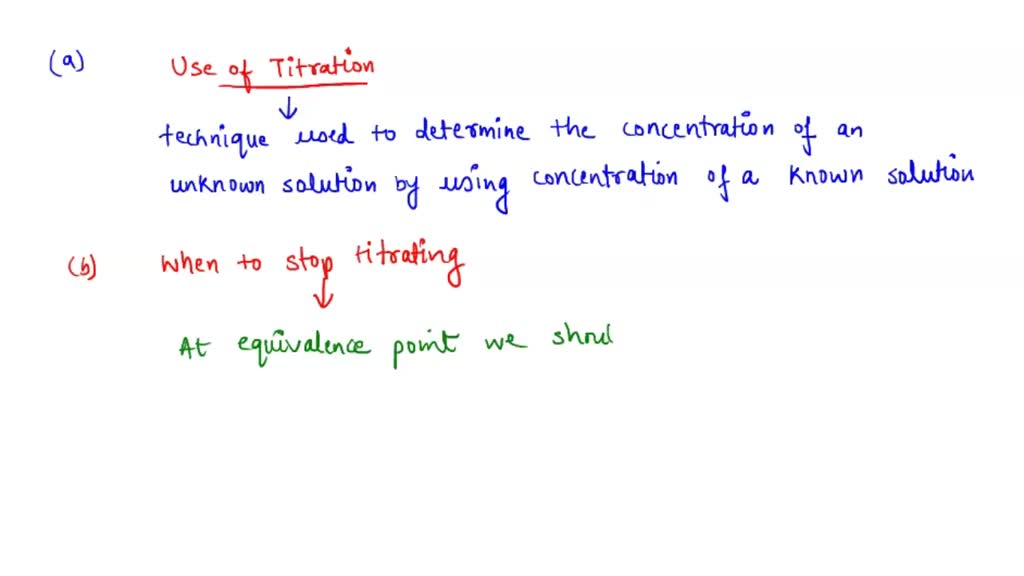 (a) Use of Titration
technique used to determine the concentration of an
unknown solution by using concentration of a known solution
(b) When to stop titrating
At equivalence point we shoul